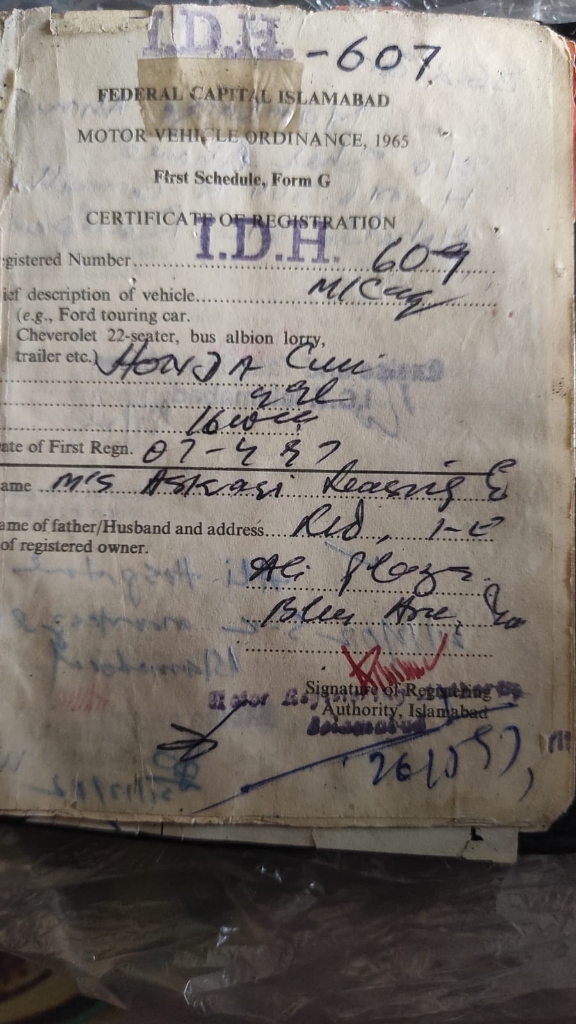 I.D.H. -607
FEDERAL CAPITAL ISLAMABAD
MOTOR VEHICLE ORDINANCE, 1965
First Schedule, Form G
CERTIFICATE OF REGISTRATION
I.D.H.
egistered Number 609
ief description of vehicle M/Car
(e.g., Ford touring car.
Cheverolet 22-seater, bus albion lorry,
trailer etc.) HONDA
ate of First Regn. 07-4 97
ame M/S Askari Leasing
ame of father/Husband and address Ltd, 1-E
of registered owner.
Ali Plaza
Blue Are,
Signature of Registering
Authority, Islamabad
Motor
Islamabad